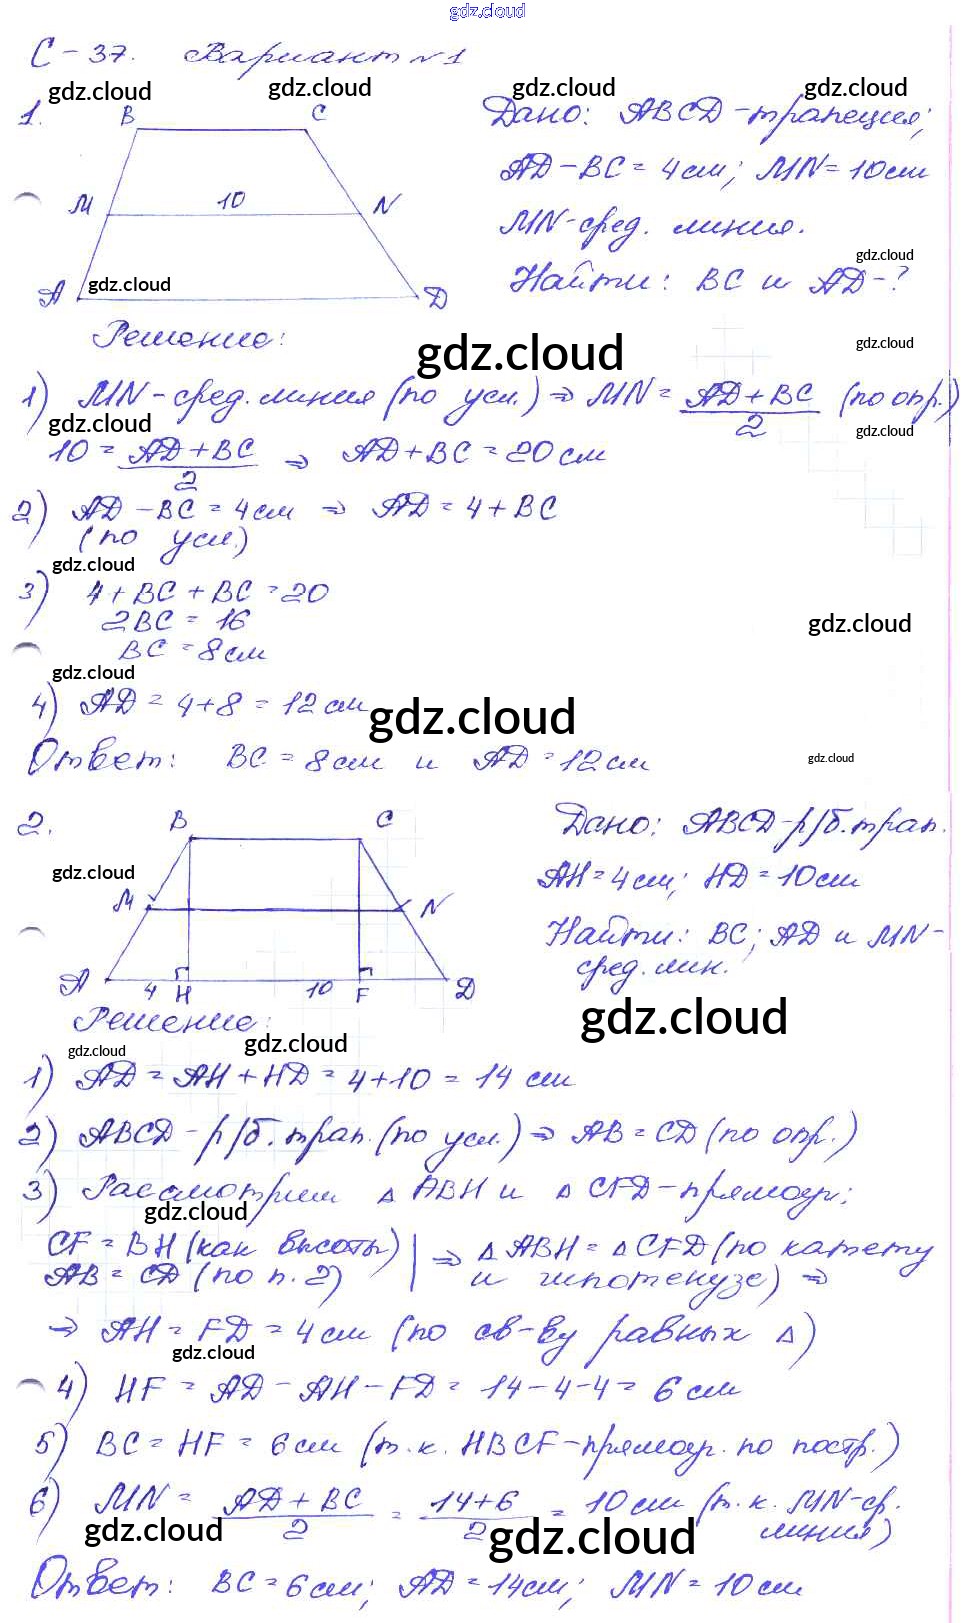 gdz.cloud
С-37. Вариант №1
gdz.cloud gdz.cloud gdz.cloud
1. B C
M 10 N
A D
gdz.cloud
Дано: ABCD-трапеция;
AD-BC=4см; MN=10см
MN-сред. линия.
gdz.cloud
Найти: BC и AD-?
Решение:
gdz.cloud gdz.cloud
1) MN-сред. линия (по усл.) ⇒ MN = (AD+BC)/2 (по опр.)
gdz.cloud gdz.cloud
10 = (AD+BC)/2 ⇒ AD+BC=20см
2) AD-BC=4см ⇒ AD=4+BC
(по усл.)
gdz.cloud
3) 4+BC+BC=20
2BC=16
gdz.cloud
BC=8см
gdz.cloud
4) AD=4+8=12см
gdz.cloud
Ответ: BC=8см и AD=12см
gdz.cloud
2. B C
M N
A 4 H 10 F D
gdz.cloud
Дано: ABCD-р/б.трап.
AH=4см; HD=10см
Найти: BC; AD и MN-
сред. мин.
gdz.cloud
Решение:
gdz.cloud gdz.cloud
1) AD=AH+HD=4+10=14 см
2) ABCD-р/б.трап. (по усл.) ⇒ AB=CD (по опр.)
3) Рассмотрим △ABH и △CFD-прямоуг;
gdz.cloud
CF=BH (как высоты) | ⇒ △ABH=△CFD (по катету
AB=CD (по п.2) | и гипотенузе) ⇒
⇒ AH=FD=4см (по св-ву равных △)
gdz.cloud
4) HF=AD-AH-FD=14-4-4=6см
5) BC=HF=6см (т.к. HBCF-прямоуг. по постр.)
6) MN = (AD+BC)/2 = (14+6)/2 = 10см (т.к. MN-ср.
линия)
gdz.cloud gdz.cloud
Ответ: BC=6см; AD=14см; MN=10см